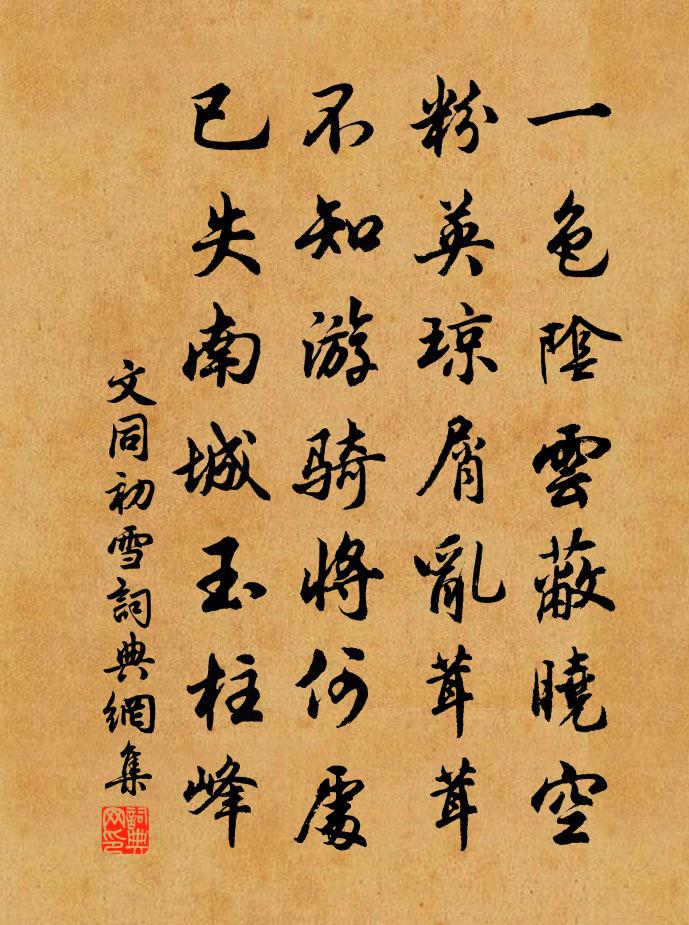 一色陰雲蔽曉空
粉英琼屑亂茸茸
不知游骑將何處
已失南城玉柱峰
文同初雪詞典網集
詞典网印